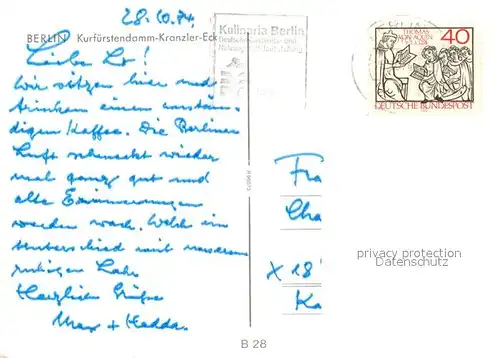 28.10.74.
BERLIN Kurfürstendamm-Kranzler-Eck
Kulinaria Berlin
THOMAS
VON AQUIN
40
DEUTSCHE BUNDESPOST
Liebe Lo!
Wir sitzen hier und
trinken einen anstän-
digen Kaffee. Die Berliner
Luft schmeckt wieder
mal ganz gut und
alte Erinnerungen
werden wach. Welch ein
Unterschied mit unserem
ruhigen Lahr
Herzliche Grüße
Max + Hedda.
Fra
Cha
X 18
Ka
privacy protection
Datenschutz
B 28